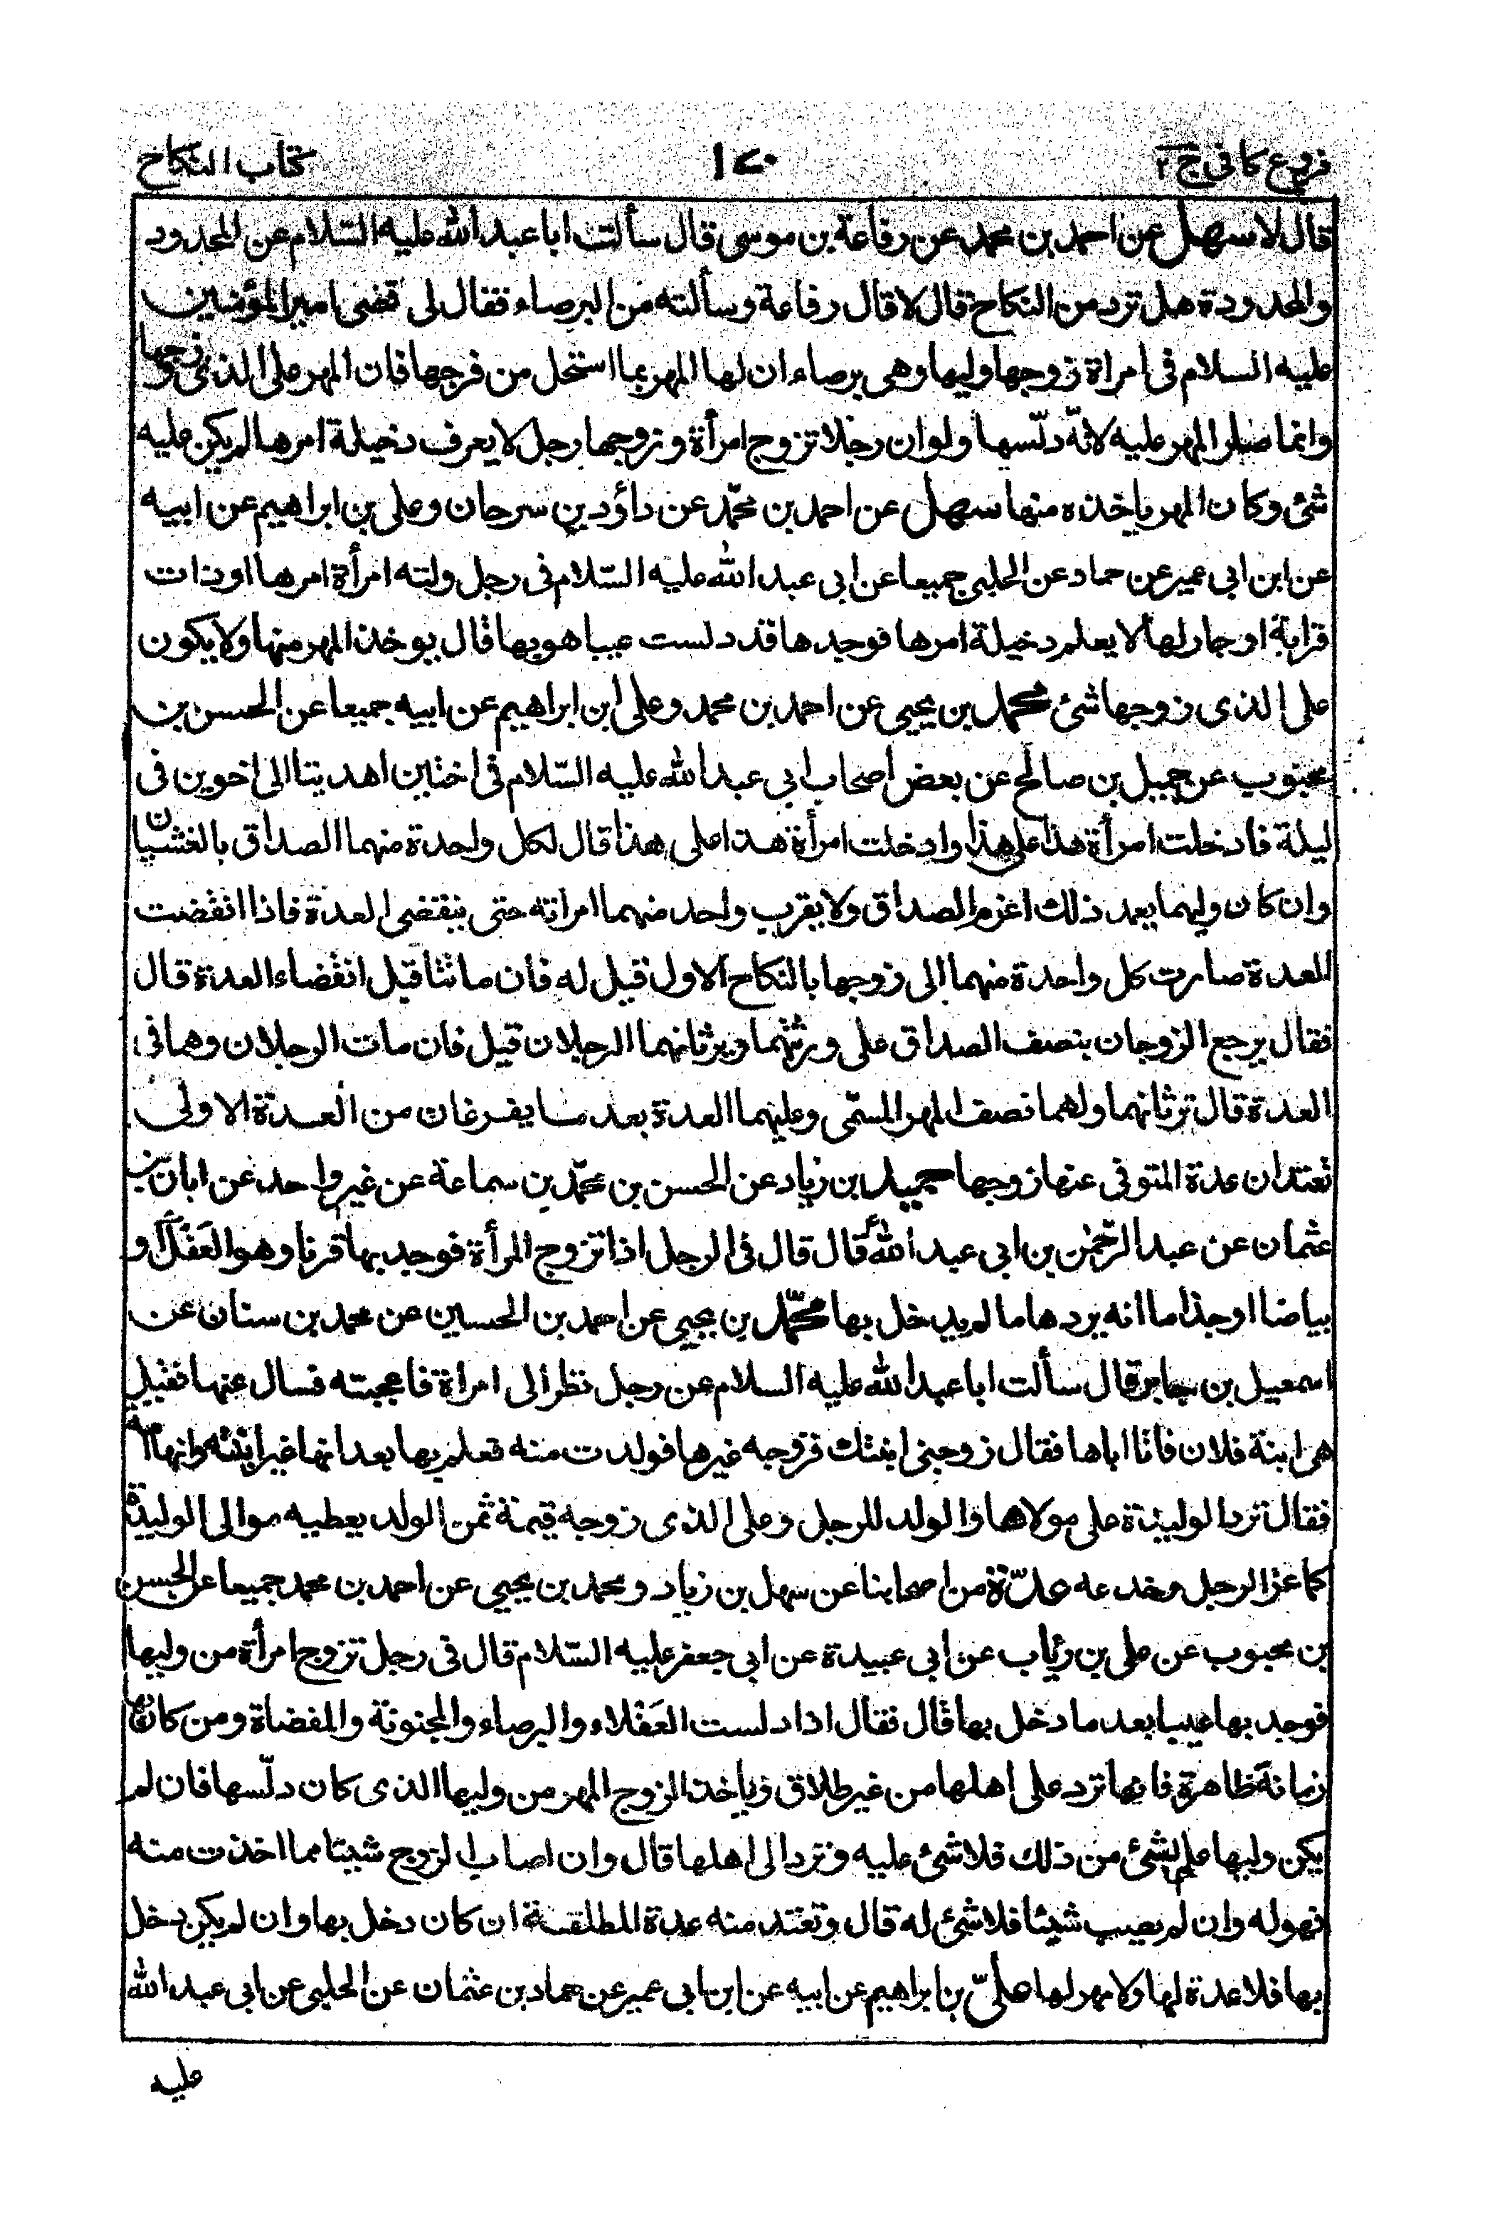 فروع كافى ج ٢
١٧٠
كتاب النكاح
قال لا سهل عن احمد بن محمد عن رفاعة بن موسى قال سألت ابا عبد الله عليه السّلام عن المحدود
والمحدودة هل ترد من النكاح قال لا قال رفاعة وسألته من البرصاء فقال لى قضى امير المؤمنين
عليه السلام فى امراة زوجها وليها وهى برصاء ان لها المهر بما استحل من فرجها فان المهر على الذى زوجها
وانما صار المهر عليه لانّه دلّسها ولو ان رجلا تزوج امرأة وزوجها رجل لا يعرف دخيلة امرها لم يكن عليه
شئ وكان المهر ياخذه منها سهل عن احمد بن محمّد عن داؤد بن سرحان وعلى بن ابراهيم عن ابيه
عن ابن ابى عمير عن حماد عن الحلبى جميعا عن ابى عبد الله عليه السّلام فى رجل ولته امرأة امرها او ذات
قرابة او جار لها لا يعلم دخيلة امرها فوجدها قد دلست عيبا هو بها قال يوخذ المهر منها ولا يكون
على الذى زوجها شئ محمد بن يحيى عن احمد بن محمد وعلى ابن ابراهيم عن ابيه جميعا عن الحسن بن
محبوب عن جميل بن صالح عن بعض اصحاب ابى عبد الله عليه السّلام فى اختين اهديتا الى اخوين فى
ليلة فادخلت امرأة هذا على هذا وادخلت امرأة هذا على هذا قال لكل واحدة منهما الصداق بالغشيان
وان كان وليهما يعمد ذلك اغرم الصداق ولا يقرب واحد منهما امراته حتى ينقضى العدة فاذا انقضت
العدة صارت كل واحدة منهما الى زوجها بالنكاح الاول قيل له فان ماتتا قبل انقضاء العدة قال
فقال يرجع الزوجان بنصف الصداق على ورثتهما ويرثانهما الرجلان قيل فان مات الرجلان وهما فى
العدة قال ترثانهما ولهما نصف المهر المسمّى وعليهما العدة بعد ما يفرغان من العدّة الاولى
تعتدان عدة المتوفى عنها زوجها حميد بن زياد عن الحسن بن محمّد بن سماعة عن غير واحد عن ابان بن
عثمان عن عبد الرّحمٰن بن ابى عبد الله قال قال فى الرجل اذا تزوج المرأة فوجد بها قرنا وهو العَفَل او
بياضا او جذاما انه يردها ما لم يدخل بها محمّد بن يحيى عن احمد بن الحسين عن محمد بن سنان عن
اسمعيل بن جابر قال سألت ابا عبد الله عليه السلام عن رجل نظر الى امراة فاعجبته فسال عنها فقيل
هى ابنة فلان فاتا اباها فقال زوجنى ابنتك فزوجه غيرها فولدت منه فعلم بها بعد انها غير ابنته وانها امة
فقال ترد الوليدة على مولاها والولد للرجل وعلى الذى زوجه قيمة ثمن الولد يعطيه موالى الوليدة
كما غرّ الرجل وخدعه عدّة من اصحابنا عن سهل بن زياد ومحمد بن يحيى عن احمد بن محمد جميعا عن الحسن
بن محبوب عن على بن رئاب عن ابى عبيدة عن ابى جعفر عليه السّلام قال فى رجل تزوج امرأة من وليها
فوجد بها عيبا بعد ما دخل بها قال فقال اذا دلست العَفْلاء والبرصاء والمجنونة والمفضاة ومن كان بها
زمانة ظاهرة فانها ترد على اهلها من غير طلاق وياخذ الزوج المهر من وليها الذى كان دلّسها فان لم
يكن وليها علم بشئ من ذلك فلا شئ عليه وترد الى اهلها قال وان اصاب الزوج شيئا مما اخذت منه
فهو له وان لم يصب شيئا فلا شئ له قال وتعتد منه عدة المطلقة ان كان دخل بها وان لم يكن دخل
بها فلا عدة لها ولا مهر لها علىّ بن ابراهيم عن ابيه عن ابن ابى عمير عن حماد بن عثمان عن الحلبى عن ابى عبد الله
عليه